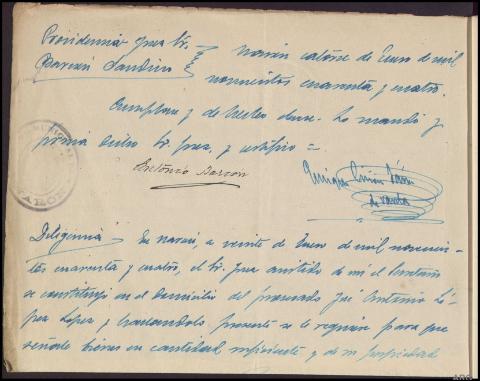 Providencia Juez Sr.
Narón catorce de Enero de mil
novecientos cuarenta y cuatro.
Cumplase y de hecho dese. Lo mandó y
firma dicho Sr. Juez, y certifico =
Antonio
Enrique
Diligencia En Narón, a veinte de Enero de mil novecien-
tos cuarenta y cuatro, el Sr. Juez asistido de mi el Secretario
se constituyó en el domicilio del procesado José Antonio Ló-
pez Lopez y hallandolo presente se le requirió para que
señale bienes en cantidad suficiente y de su propiedad
NARÓN